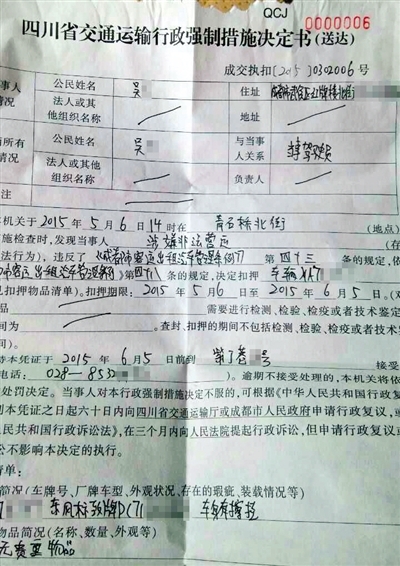 QCJ
0000006
四川省交通运输行政强制措施决定书(送达)
成交执扣〔2015〕0302006号
事人 公民姓名 吴 住址
情况 法人或其他组织名称 地址
所有 公民姓名 吴 与当事人关系
情况 法人或其他组织名称 负责人
注
机关于2015年5月6日14时在 青石桥北街 (地点)
施检查时,发现当事人 涉嫌非法营运 (在
法行为),违反了《成都市客运出租汽车管理条例》第四十三条的规定,依
市客运出租汽车管理条例》第四十八条的规定,决定扣押 车辆川A7
扣押物品清单)。扣押期限:2015年5月6日至2015年6月5日。(对
品 需要进行检测、检验、检疫或者技术鉴定
间为 。查封、扣押的期间不包括检测、检验、检疫或者技术鉴
持本凭证于2015年6月5日前到 号 接受
电话:028-8532 )。逾期不接受处理的,本机关将依
处罚决定。当事人对本行政强制措施决定不服的,可根据《中华人民共和国行政复
到本凭证之日起六十日内向四川省交通运输厅或成都市人民政府申请行政复议,或
民共和国行政诉讼法》,在三个月内向人民法院提起行政诉讼,但申请行政复议或
讼不影响本决定的执行。
清单:
简况(车牌号、厂牌车型、外观状况、存在的瑕疵、装载情况等)
71 东风标致牌DC71 车身有擦挂
物品简况(名称、数量、外观等)
无贵重物品